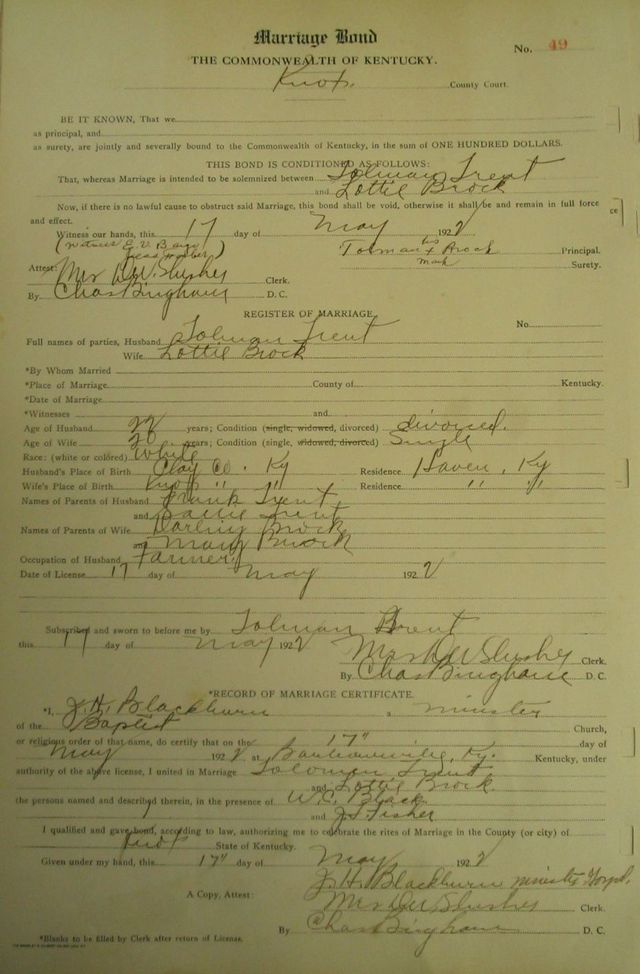 Marriage Bond
No. 49
THE COMMONWEALTH OF KENTUCKY.
Knox County Court.
BE IT KNOWN, That we
as principal, and
as surety, are jointly and severally bound to the Commonwealth of Kentucky, in the sum of ONE HUNDRED DOLLARS.
THIS BOND IS CONDITIONED AS FOLLOWS:
That, whereas Marriage is intended to be solemnized between Tolman Trent
and Lottie Brock
Now, if there is no lawful cause to obstruct said Marriage, this bond shall be void, otherwise it shall be and remain in full force
and effect.
Witness our hands, this 17 day of May 1922
(Witness E. V.
his
Brock Principal.
mark
Surety.
Attest: Mrs D. W. Slusher Clerk.
By Chas Bingham D. C.
REGISTER OF MARRIAGE.
No.
Full names of parties, Husband Tolman Trent
Wife Lottie Brock
*By Whom Married
*Place of Marriage County of Kentucky.
*Date of Marriage
*Witnesses and
Age of Husband 22 years; Condition (single, widowed, divorced) divorced.
Age of Wife 20 years; Condition (single, widowed, divorced) Single
Race: (white or colored) White
Husband's Place of Birth Clay Co. Ky Residence Haven, Ky
Wife's Place of Birth Knox " " Residence " "
Names of Parents of Husband Frank Trent
and Trent
Names of Parents of Wife Darling Brock
and Mary Brock
Occupation of Husband Farmer
Date of License 17 day of May 1922
Subscribed and sworn to before me by Tolman Trent
this 17 day of May 1922
Mrs D W Slusher Clerk.
By Chas Bingham D. C.
*RECORD OF MARRIAGE CERTIFICATE.
*I, J. H. Blackburn a minister
of the Baptist Church,
or religious order of that name, do certify that on the 17" day of
May 1922 at Barbourville, Ky. Kentucky, under
authority of the above license, I united in Marriage Solomon Trent
and Lottie Brock
the persons named and described therein, in the presence of W. C. Black
and J. S. Fisher
I qualified and gave bond, according to law, authorizing me to celebrate the rites of Marriage in the County (or city) of
Knox State of Kentucky.
Given under my hand, this 17" day of May 1922
J. H. Blackburn minister Gospel.
A Copy, Attest: Mrs D W Slusher Clerk.
By Chas Bingham D. C.
*Blanks to be filled by Clerk after return of License.